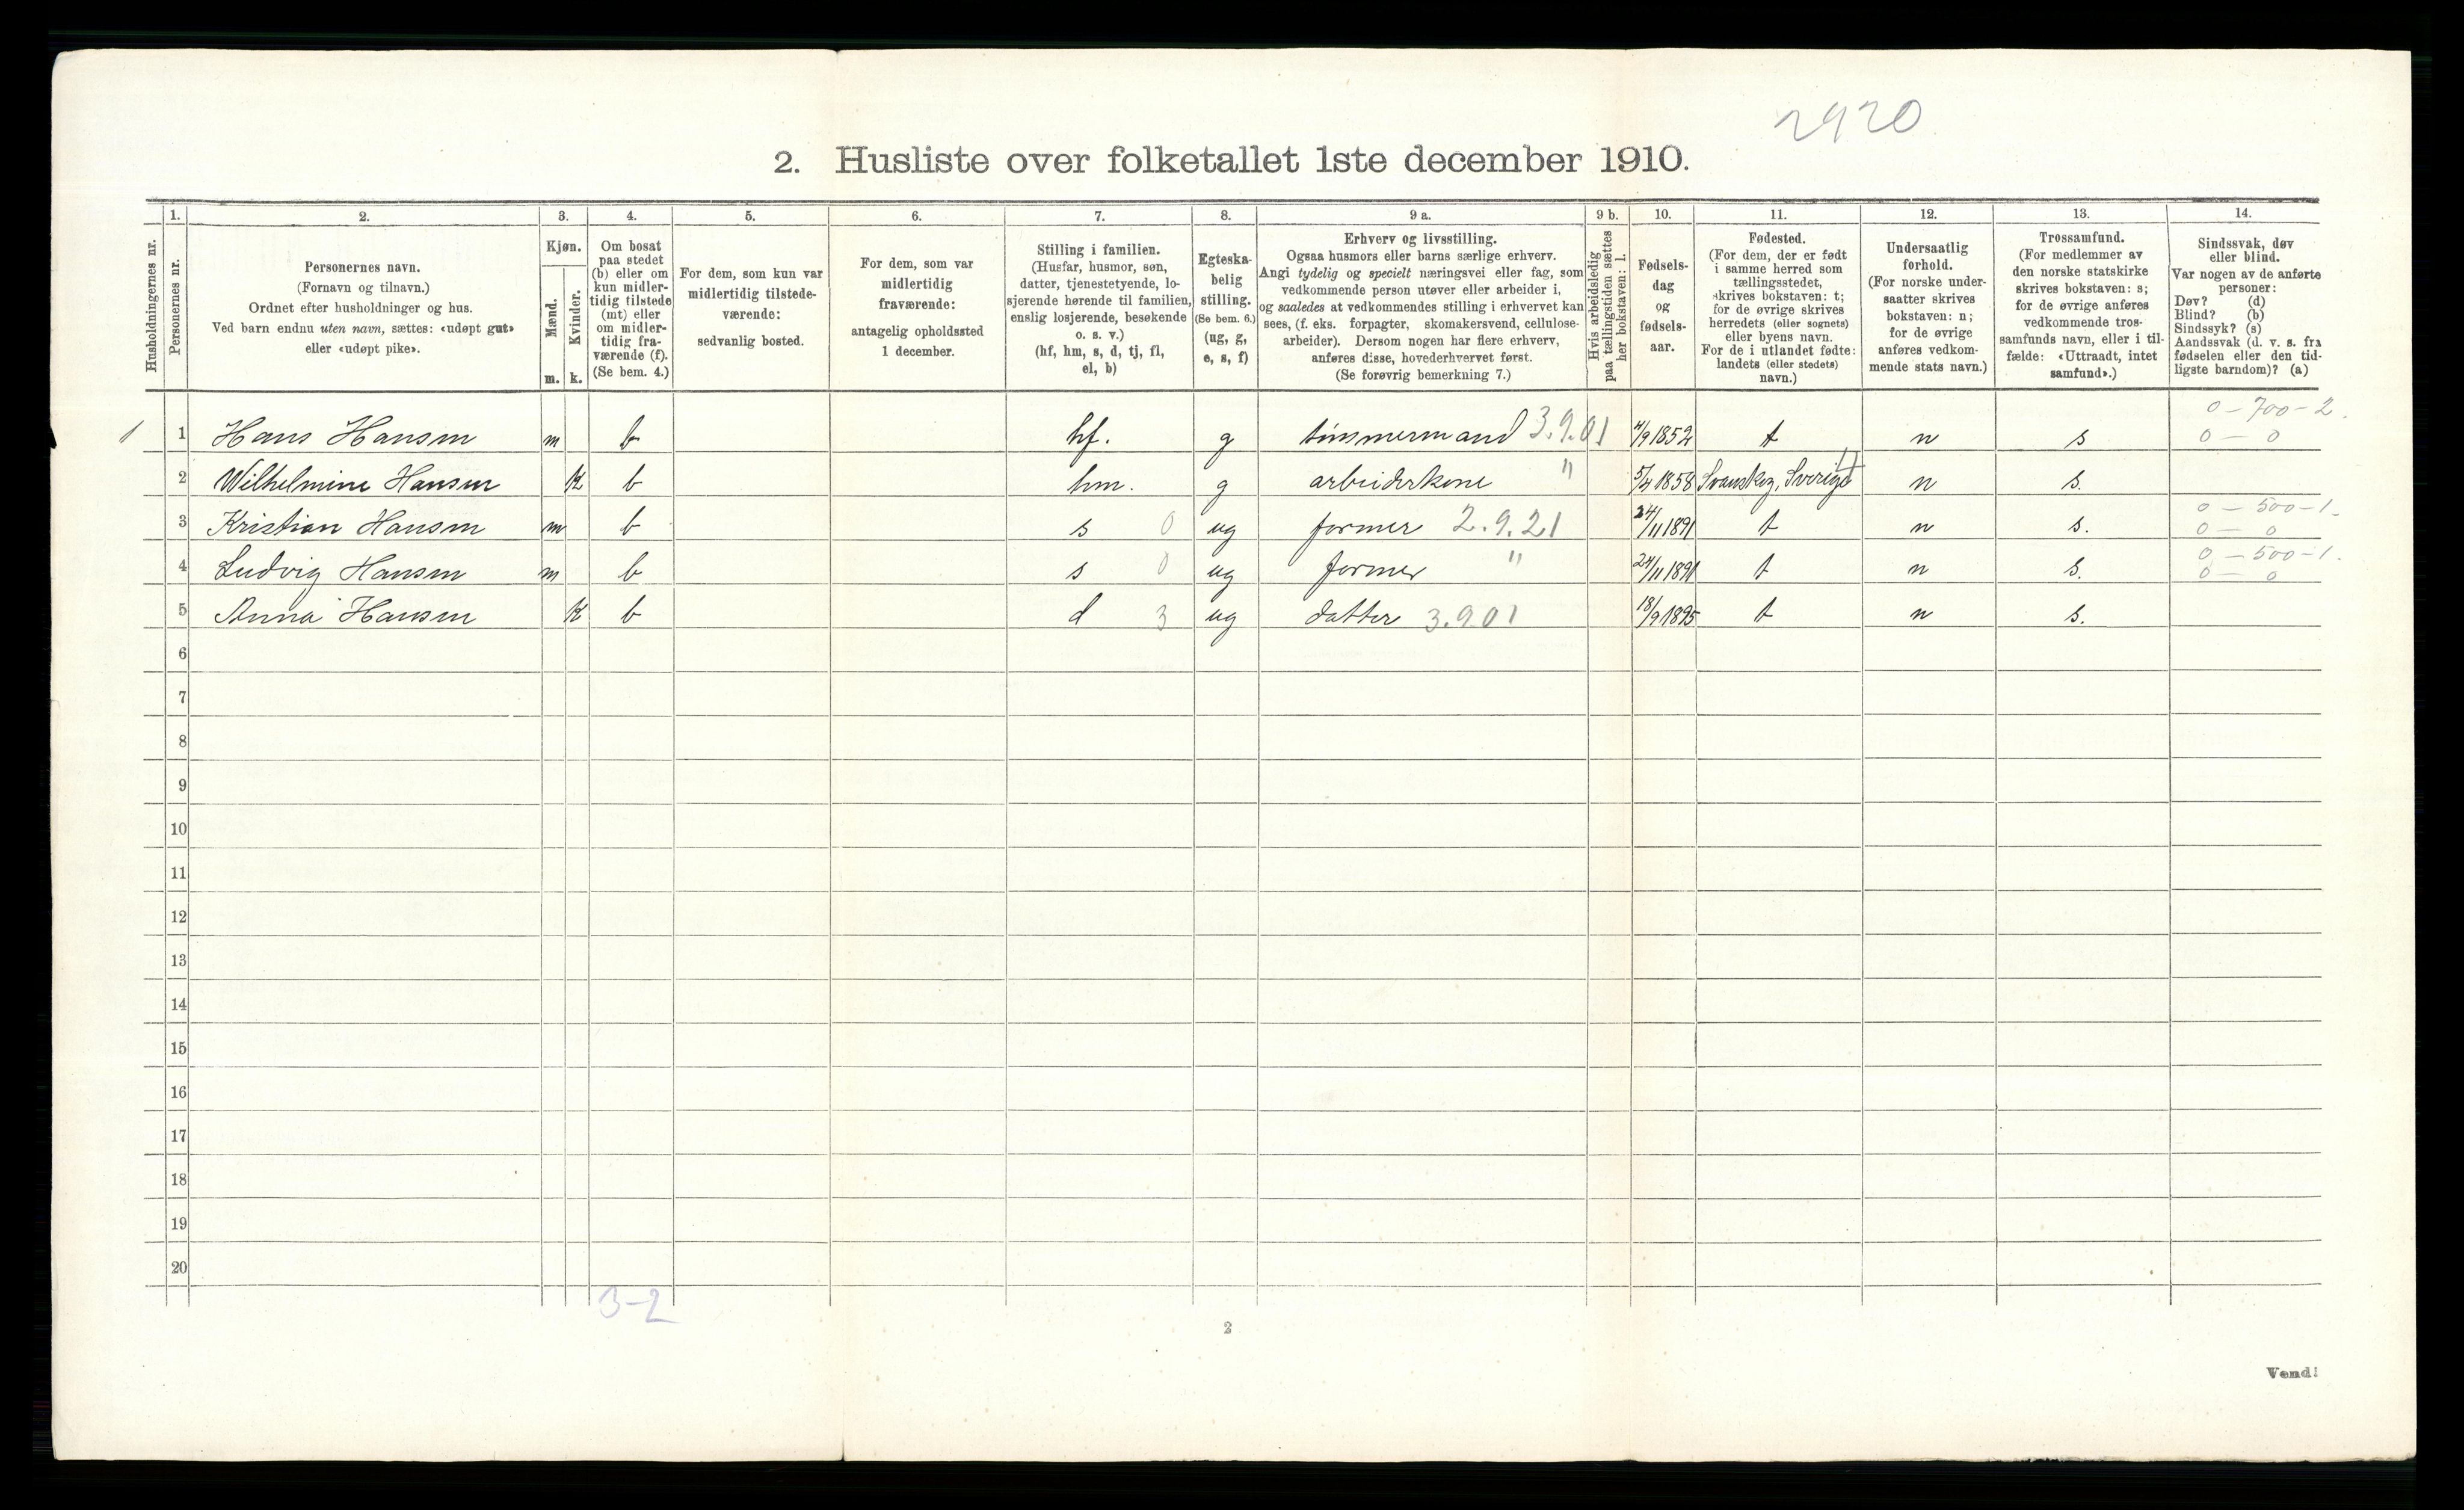 2920
2. Husliste over folketallet 1ste december 1910.
Husholdningernes nr.
1. Personernes nr.
2. Personernes navn. (Fornavn og tilnavn.) Ordnet efter husholdninger og hus. Ved barn endnu uten navn, sættes: «udøpt gut» eller «udøpt pike».
3. Kjøn. Mænd. m. Kvinder. k.
4. Om bosat paa stedet (b) eller om kun midler- tidig tilstede (mt) eller om midler- tidig fra- værende (f). (Se bem. 4.)
5. For dem, som kun var midlertidig tilstede- værende: sedvanlig bosted.
6. For dem, som var midlertidig fraværende: antagelig opholdssted 1 december.
7. Stilling i familien. (Husfar, husmor, søn, datter, tjenestetyende, lo- sjerende hørende til familien, enslig losjerende, besøkende o. s. v.) (hf, hm, s, d, tj, fl, el, b)
8. Egteska- belig stilling. (Se bem. 6.) (ug, g, e, s, f)
9 a. Erhverv og livsstilling. Ogsaa husmors eller barns særlige erhverv. Angi tydelig og specielt næringsvei eller fag, som vedkommende person utøver eller arbeider i, og saaledes at vedkommendes stilling i erhvervet kan sees, (f. eks. forpagter, skomakersvend, cellulose- arbeider). Dersom nogen har flere erhverv, anføres disse, hovederhvervet først. (Se forøvrig bemerkning 7.)
9 b. Hvis arbeidsledig paa tællingstiden sættes her bokstaven: l.
10. Fødsels- dag og fødsels- aar.
11. Fødested. (For dem, der er født i samme herred som tællingsstedet, skrives bokstaven: t; for de øvrige skrives herredets (eller sognets) eller byens navn. For de i utlandet fødte: landets (eller stedets) navn.)
12. Undersaatlig forhold. (For norske under- saatter skrives bokstaven: n; for de øvrige anføres vedkom- mende stats navn.)
13. Trossamfund. (For medlemmer av den norske statskirke skrives bokstaven: s; for de øvrige anføres vedkommende tros- samfunds navn, eller i til- fælde: «Uttraadt, intet samfund».)
14. Sindssvak, døv eller blind. Var nogen av de anførte personer: Døv? (d) Blind? (b) Sindssyk? (s) Aandssvak (d. v. s. fra fødselen eller den tid- ligste barndom)? (a)
0 - 700 - 2.
1 1 Hans Hansen m b hf. g tømmermand 3.9.01 4/9 1852 t n s 0 - 0
2 Wilhelmine Hansen K b hm. g arbeiderkone " 5/4 1858 Svanskog, Sverige n s.
0 - 500 - 1.
3 Kristian Hansen m b s 0 ug former 2.9.21 24/11 1891 t n s. 0 - 0
0 - 500 - 1.
4 Ludvig Hansen m b s 0 ug former " 24/11 1891 t n s. 0 - 0
5 Anna Hansen K b d 3 ug datter 3.9.01 18/9 1895 t n s.
6
7
8
9
10
11
12
13
14
15
16
17
18
19
20
3-2
2
Vend!